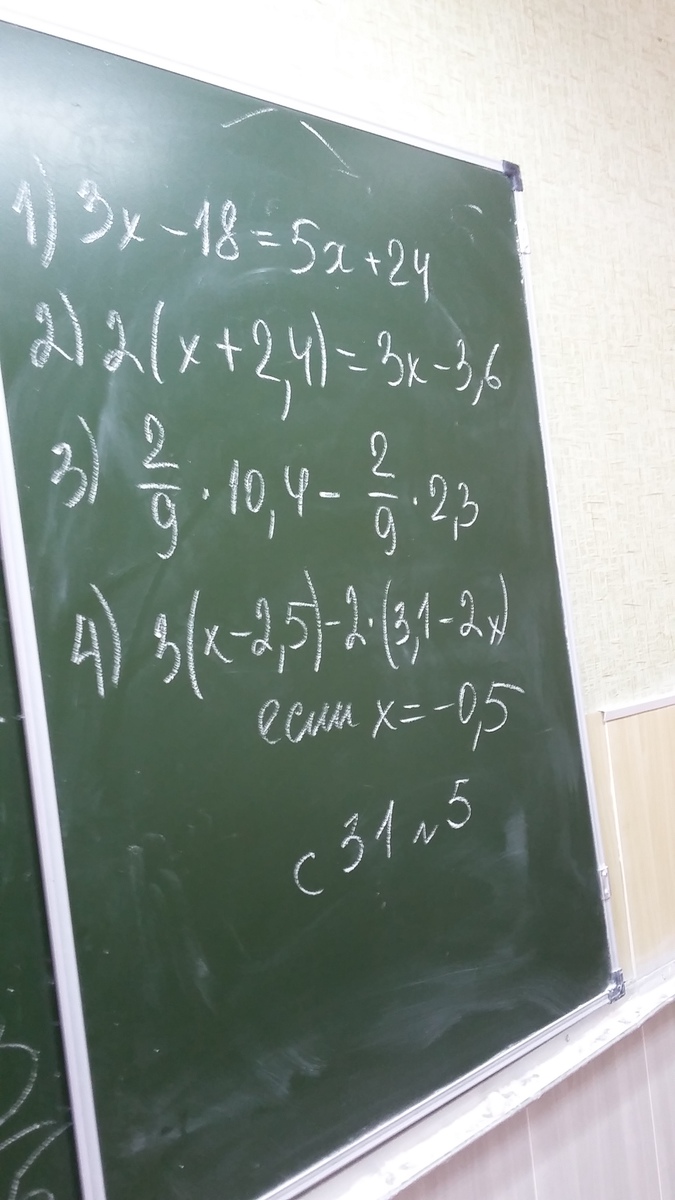 1) 3x - 18 = 5x + 24
2) 2(x + 2,4) = 3x - 3,6
3) 2/9 · 10,4 - 2/9 · 2,3
4) 3(x - 2,5) - 2·(3,1 - 2x)
если x = -0,5
с 31 № 5